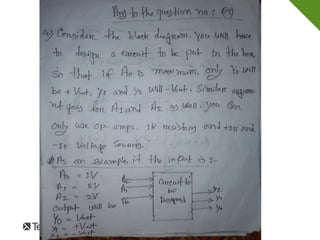 Ans to the question no: (04)
4) Consider the block diagram. You will have
to design a circuit to be put in the box,
so that if A0 is maximum, only Y0 will
be +Vsat, Y1 and Y2 will -Vsat. Similar
goes for A1 and A2 as well. You can
only use op-amps, 1k resistors and +1v and
-1v voltage sources.
As an example, if the input is 1-
A0 = 1V
A1 = 5V
A2 = 2V
output will be
Y0 = -Vsat
Y1 = +Vsat
Y2 = -Vsat
Circuit to
be
Designed
Y2
Y1
Y0